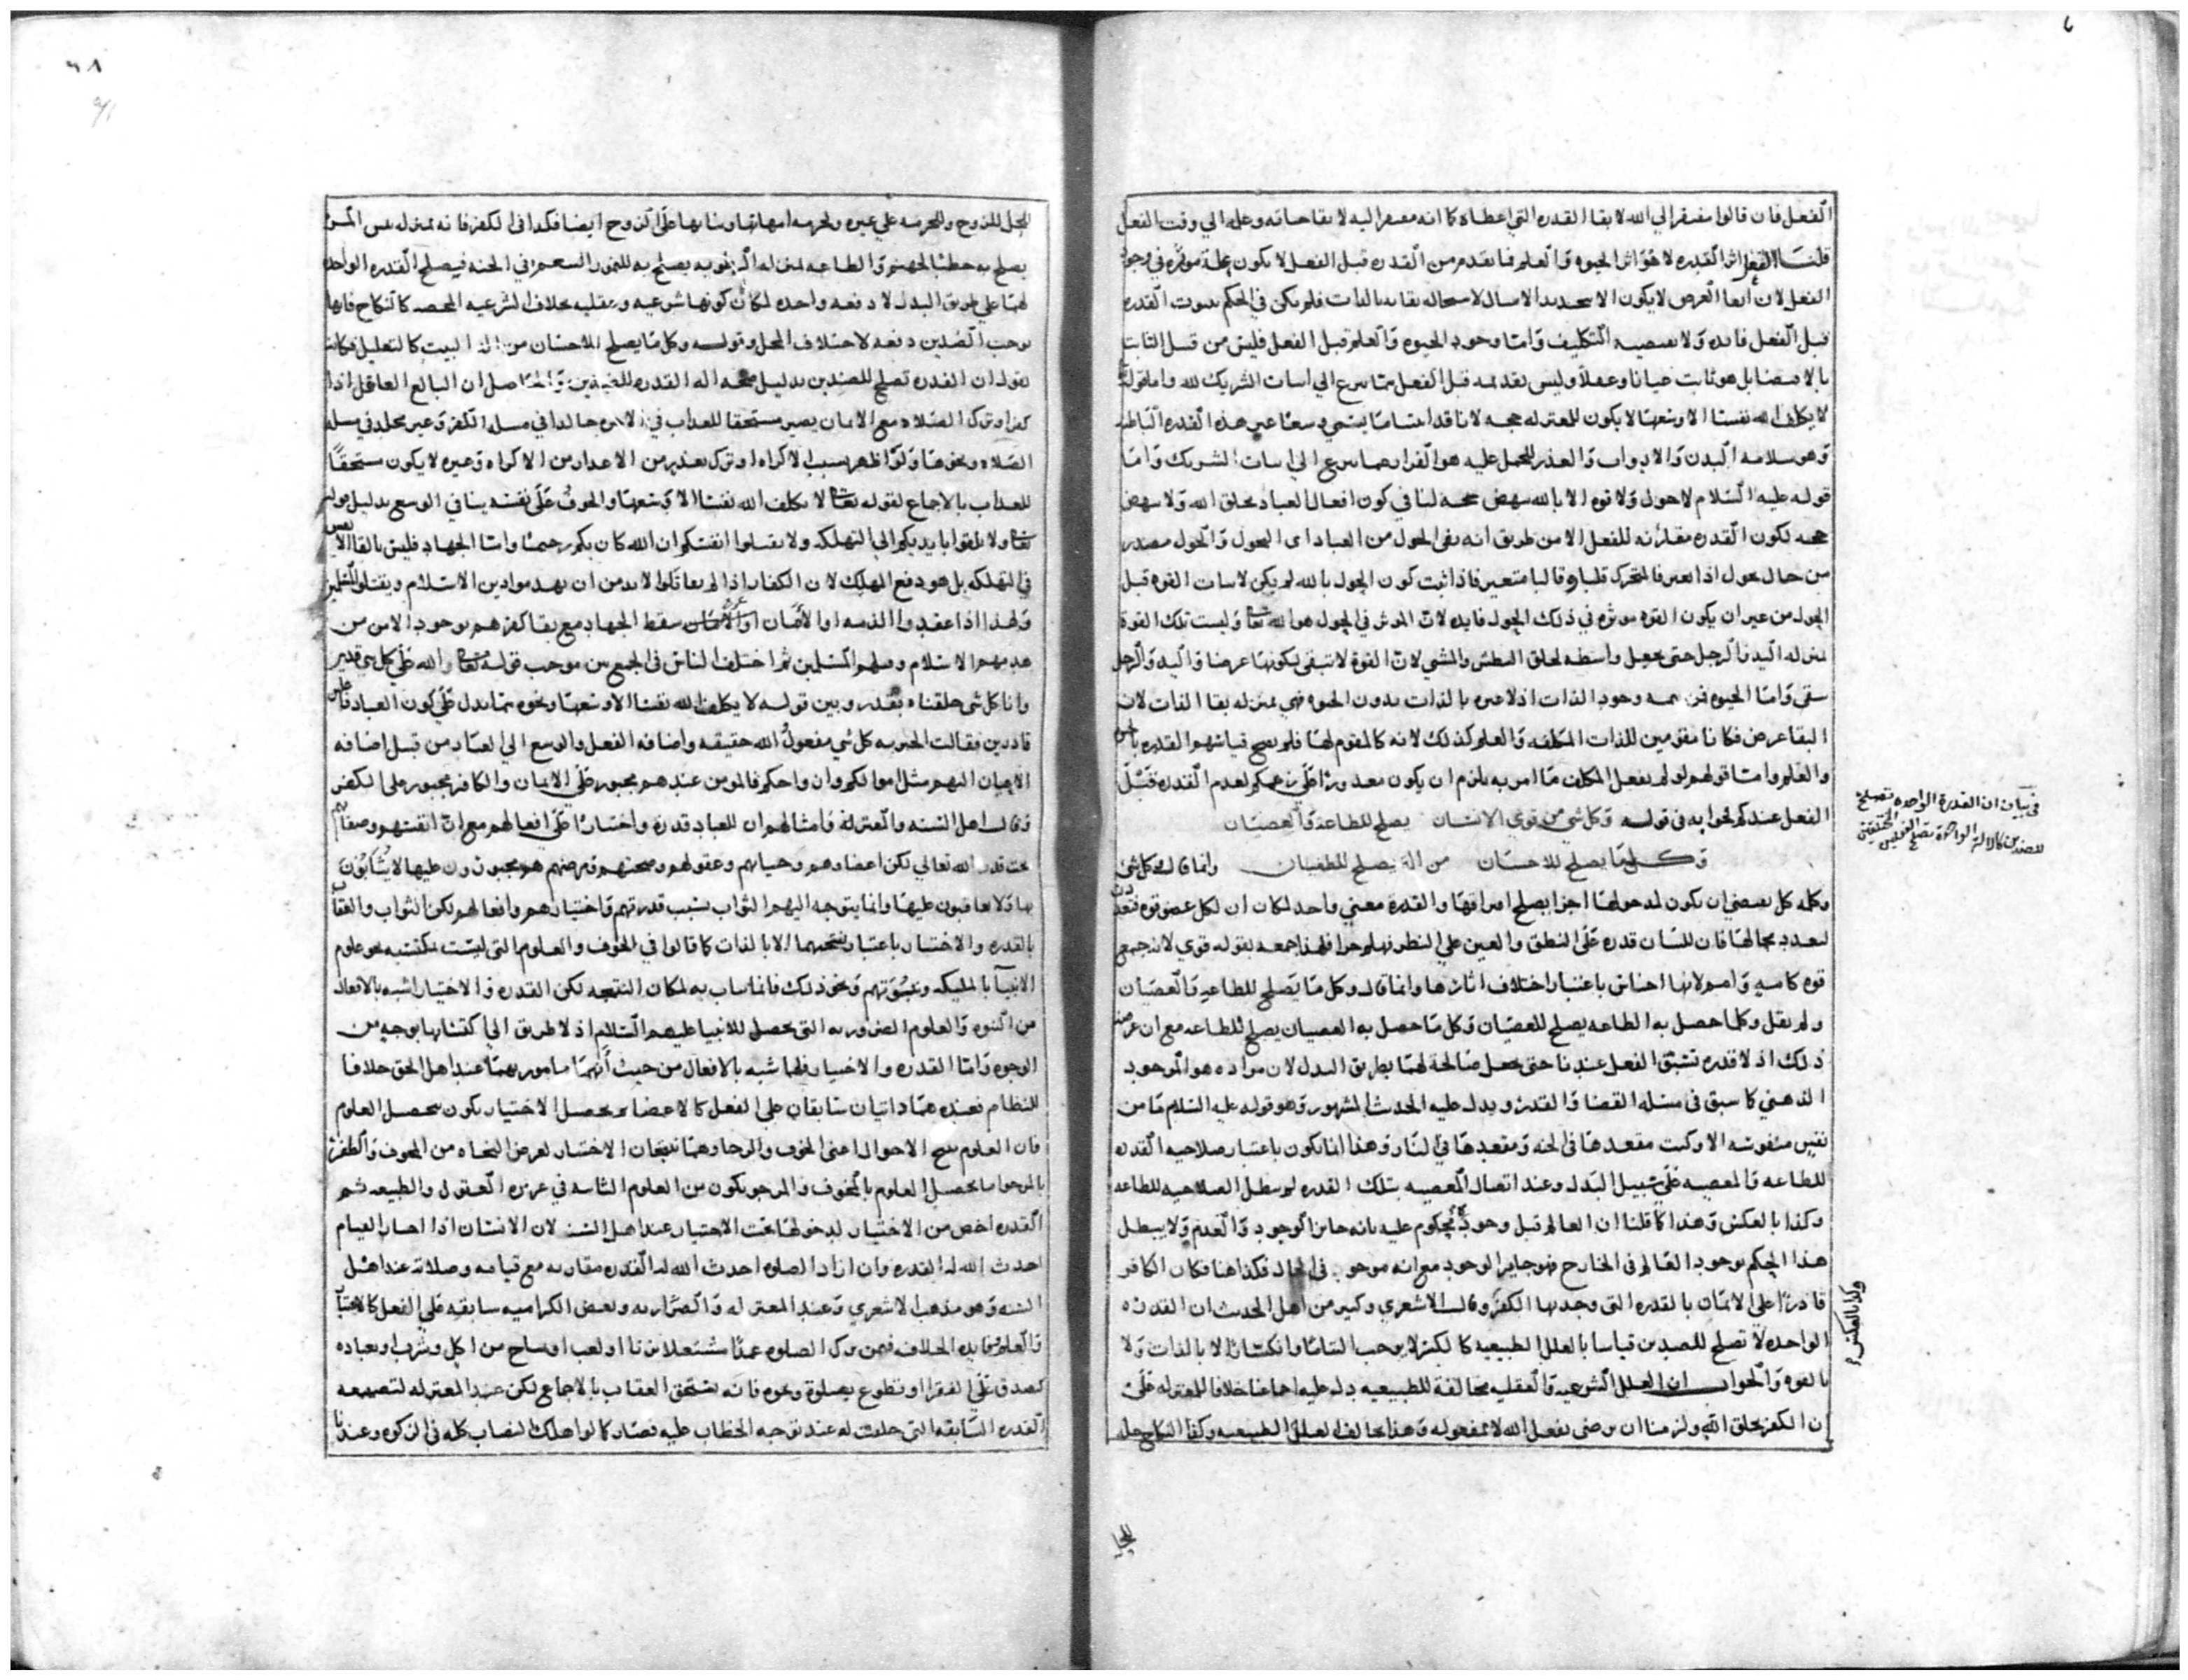 الفعل فان قالوا مفتقر الي الله لا بقا القدره التي اعطاه كما انه مفتقر اليه لا بقا حياته وعلمه الي وقت الفعل
قلنا الفعل اثر القدره لا هو اثر الحيوه والعلم فما تقدم من القدره قبل الفعل لا يكون علة موثره في وجود
الفعل لان بقا العرض لا يكون الا بتجدد الامثال لاستحاله بقايه بالذات فلم يكن في الحكم بثبوت القدره
قبل الفعل فايده ولا يقتضيه التكليف واما وجود الحيوه والعلم قبل الفعل فليس من قبيل الثابت
بالاقتضا بل هو ثابت عيانا وعقلا وليس تقديمه قبل الفعل مما يرجع الي اثبات الشريك لله واما قوله
لا يكلف الله نفسا الا وسعها لا يكون للمعتزله حجه لانا قد اثبتنا ما يسمي وسعا غير هذه القدره الباطنه
وهو سلامه البدن والادوات والعذر المحمل عليه هو الفرار عما يرجع الي اثبات الشريك واما
قوله عليه السلام لا حول ولا قوه الا بالله ينهض حجه لنا في كون افعال العباد بخلق الله ولا ينهض
حجه لكون القدره مقارنه للفعل الا من طريق انه نفي الحول من العباد اى التحول والحول مصدر
من حال يحول اذا تغير فالمتحرك قلبا وقالبا متغير فاذا ثبت كون الحول بالله لم يكن لاثبات القوه قبل
الحول من غير ان يكون القوه موثره في ذلك الحول فايده لان الموثر في الحول هو الله تعا وليست تلك القوة
بمنزله اليد والرجل حتى يجعل واسطه لخلق البطش والمشي لان القوة لا تبقى لكونها عرضا واليد والرجل
تبقى واما الحيوه فمن وجود الذات اذ لا عبره بالذات بدون الحيوه فهي بمنزله بقا الذات لان
البقا عرض فكانا مقومين للذات المكلفه والعلم كذلك لانه كالمقوم لها فلم يصح قياسهم القدره بالحيوة
والعلم واما قولهم لو لم يفعل المكلف ما امر به يلزم ان يكون معذورا على زعمكم لعدم القدره قبل
الفعل عندكم فجوابه في قوله وكل شي من قوي الانسان يصلح للطاعة والعصيان
وكل ما يصلح للاحسان من الة يصلح للطغيان وانما قال كل شئ
وكلمه كل يقتضي ان يكون لمدخولها اجزا يصلح افتراقها والقدره معني واحد لمكان ان لكل عضو قوه فتعددت
لتعدد محالها فان للسان قدره على النطق والعين علي النظر وهلم جرا فلهذا جمعه بقوله قوي لانه جمع
قوه كامنه وامم لانها اجناس باعتبار اختلاف اثارها وانما قال وكل ما يصلح للطاعه والعصيان
ولم يقل وكلما حصل به الطاعه يصلح للعصيان وكل ما حصل به العصيان يصلح للطاعه مع ان غرضه
ذلك اذ لا قدره تسبق الفعل عندنا حتى يجعل صالحة لهما بطريق البدل لان مراده هو الموجود
الذهني كما سبق في مسله القضا والقدر ويدل عليه الحدث المشهور وهو قوله عليه السلام ما من
نفس منفوسه الا وكتب مقعدها في الجنه ومقعدها في النار وهذا انما يكون باعتبار صلاحيه القدره
للطاعه والمعصيه على سبيل البدل وعند اتصال المعصيه بتلك القدره لم يبطل الصلاحيه للطاعه
وكذا بالعكس وهذا كما قلنا ان العالم قبل وجوده محكوم عليه بانه جايز الوجود والعدم ولا يبطل
هذا الحكم بوجود العالم في الخارج فهو جايز الوجود مع انه موجود في الحال فكذا هنا فكان الكافر
قادرا على الايمان بالقدره التى وجد بها الكفر وقال الاشعري وكثير من اهل الحدث ان القدره
الواحده لا تصلح للضدين قياسا بالعلل الطبيعيه كالكسر لا يوجب التياما وانكسارا لا بالذات ولا
بالقوه والجواب ان العلل الشرعيه والعقليه مخالفة للطبيعيه دل عليه اجماعنا خلافا للمعتزله على
ان الكفر بخلق الله ولزمنا ان نرضى بفعل الله لا بمفعوله وهذا مخالف لعلل الطبيعيه وكذا النكاح علة
في بيان ان القدرة الواحده تصلح
للضدين كالالة الواحدة تصلح للفعلين المختلفين
وكذا بالعكس
للحل
٦٨
للحل للزوج وللحرمه علي غيره ولحرمه امهاتها وبناتها على الزوج ايضا فكذا في الكفر فانه بمنزله
يصلح به حطبا لجهنم والطاعه بمنزله الذهب به يصلح به للتنعم في الجنه فيصلح القدره الواحده
لهما علي طريق البدل لا دفعه واحده لمكان كونها شرعيه وعقليه بخلاف الشرعيه المحضه كالنكاح فانها
يوجب الضدين دفعه لاختلاف المحل وقوله وكل ما يصلح للاحسان من الة البيت كالتعليل فكانه
يقول ان القدره تصلح للضدين بدليل صحه اله القدره للضدين والحاصل ان البالغ العاقل اذا
كفر او ترك الصلاه مع الايمان يصير مستحقا للعذاب في الاخره خالدا في مسله الكفر وغير مخلد في مسله
الصلاه ونحوها ولو اظهر بسبب الاكراه او ترك بعذر من الاعذار من الاكراه وغيره لا يكون مستحقا
للعذاب بالاجماع لقوله تعا لا يكلف الله نفسا الا وسعها والخوف على نفسه ينافي الوسع بدليل قوله
تعا ولا تلقوا بايديكم الي التهلكه ولا تقتلوا انفسكم ان الله كان بكم رحيما واما الجهاد فليس بالقا النفس
في التهلكه بل هو دفع المهلك لان الكفار اذا لم يقاتلوا لا بد من ان يهدموا دين الاسلام ويقتلوا المسلمين
ولهذا اذا عقدوا الذمه او الامان سقط الجهاد مع بقا كفرهم بوجود الامن من
هدمهم الاسلام وقتلهم المسلمين ثم اختلف الناس في الجمع بين موجب قوله تعا والله على كل شي قدير
وانا كل شى خلقناه بقدر وبين قوله لا يكلف الله نفسا الا وسعها ونحوه مما يدل على كون العباد فاعلين
قادرين فقالت الجبريه كل شي مفعول الله حقيقه واضافه الفعل والوسع الي العباد من قبيل اضافه
الاعيان اليهم مثل اموالكم وازواجكم فالمومن عندهم مجبور على الايمان والكافر مجبور على الكفر
وقال اهل السنه والمعتزله وامثالهم ان للعباد قدرة واختيارا على افعالهم مع ان انفسهم وصفاتهم
تحت قدر الله تعالي لكن اعضاوهم وحياتهم وعقولهم وصحتهم ومرضهم هم مجبورون عليها لا يثابون
بها ولا يعاقبون عليها وانما يتوجه اليهم الثواب بسبب قدرتهم واختيارهم وافعالهم لكن الثواب والعقاب
بالقدره والاختيار باعتبار نتيجتهما لا بالذات كما قالوا في الخوف والعلوم التى ليست مكتسبه نحو علوم
الانبيا بالمليكه ونبوتهم ونحو ذلك فانما يثاب به لمكان النتيجه لكن القدره والاختيار اشبه بالافعال
من النبوه والعلوم الضروريه التى يحصل للانبيا عليهم السلام اذ لا طريق الي اكتسابها بوجه من
الوجوه واما القدره والاختيار فلهما شبه بالافعال من حيث انهما مامور بهما عند اهل الحق خلافا
للنظام فعنده هما ذاتيان سابقان علي الفعل كالاعضا ثم تحصيل الاختيار يكون بتحصيل العلوم
فان العلوم ينتج الاحوال اعنى الخوف والرجا وهما ينتجان الاختيار لغرض النجاه من المخوف والظفر
بالمرجو انما تحصيل العلوم بالمخوف والمرجو يكون من العلوم الثابته في غريزه العقول والطبيعه ثم
القدره اخص من الاختيار لدخولها تحت الاختيار عند اهل السنه لان الانسان اذا اختار القيام
احدث الله له القدره وان اراد الصلوه احدث الله له القدره مقارنه مع قيامه وصلاته عند اهل
السنه وهو مذهب الاشعري وعند المعتزله والضراريه وبعض الكراميه سابقه علي الفعل كالاختيار
والعلم وفايده الخلاف فيمن ترك الصلوه عمدا مشتغلا بزنا او لعب او مباح من اكل وشرب او بعباده
كصدق على الفقرا او تطوع بصلوة ونحوه فانه يستحق العقاب بالاجماع لكن عند المعتزله لتضييعه
القدره السابقه التي خلقت له عند توجه الخطاب عليه فصار كما لو اهلك النصاب كله في الزكوه وعندنا